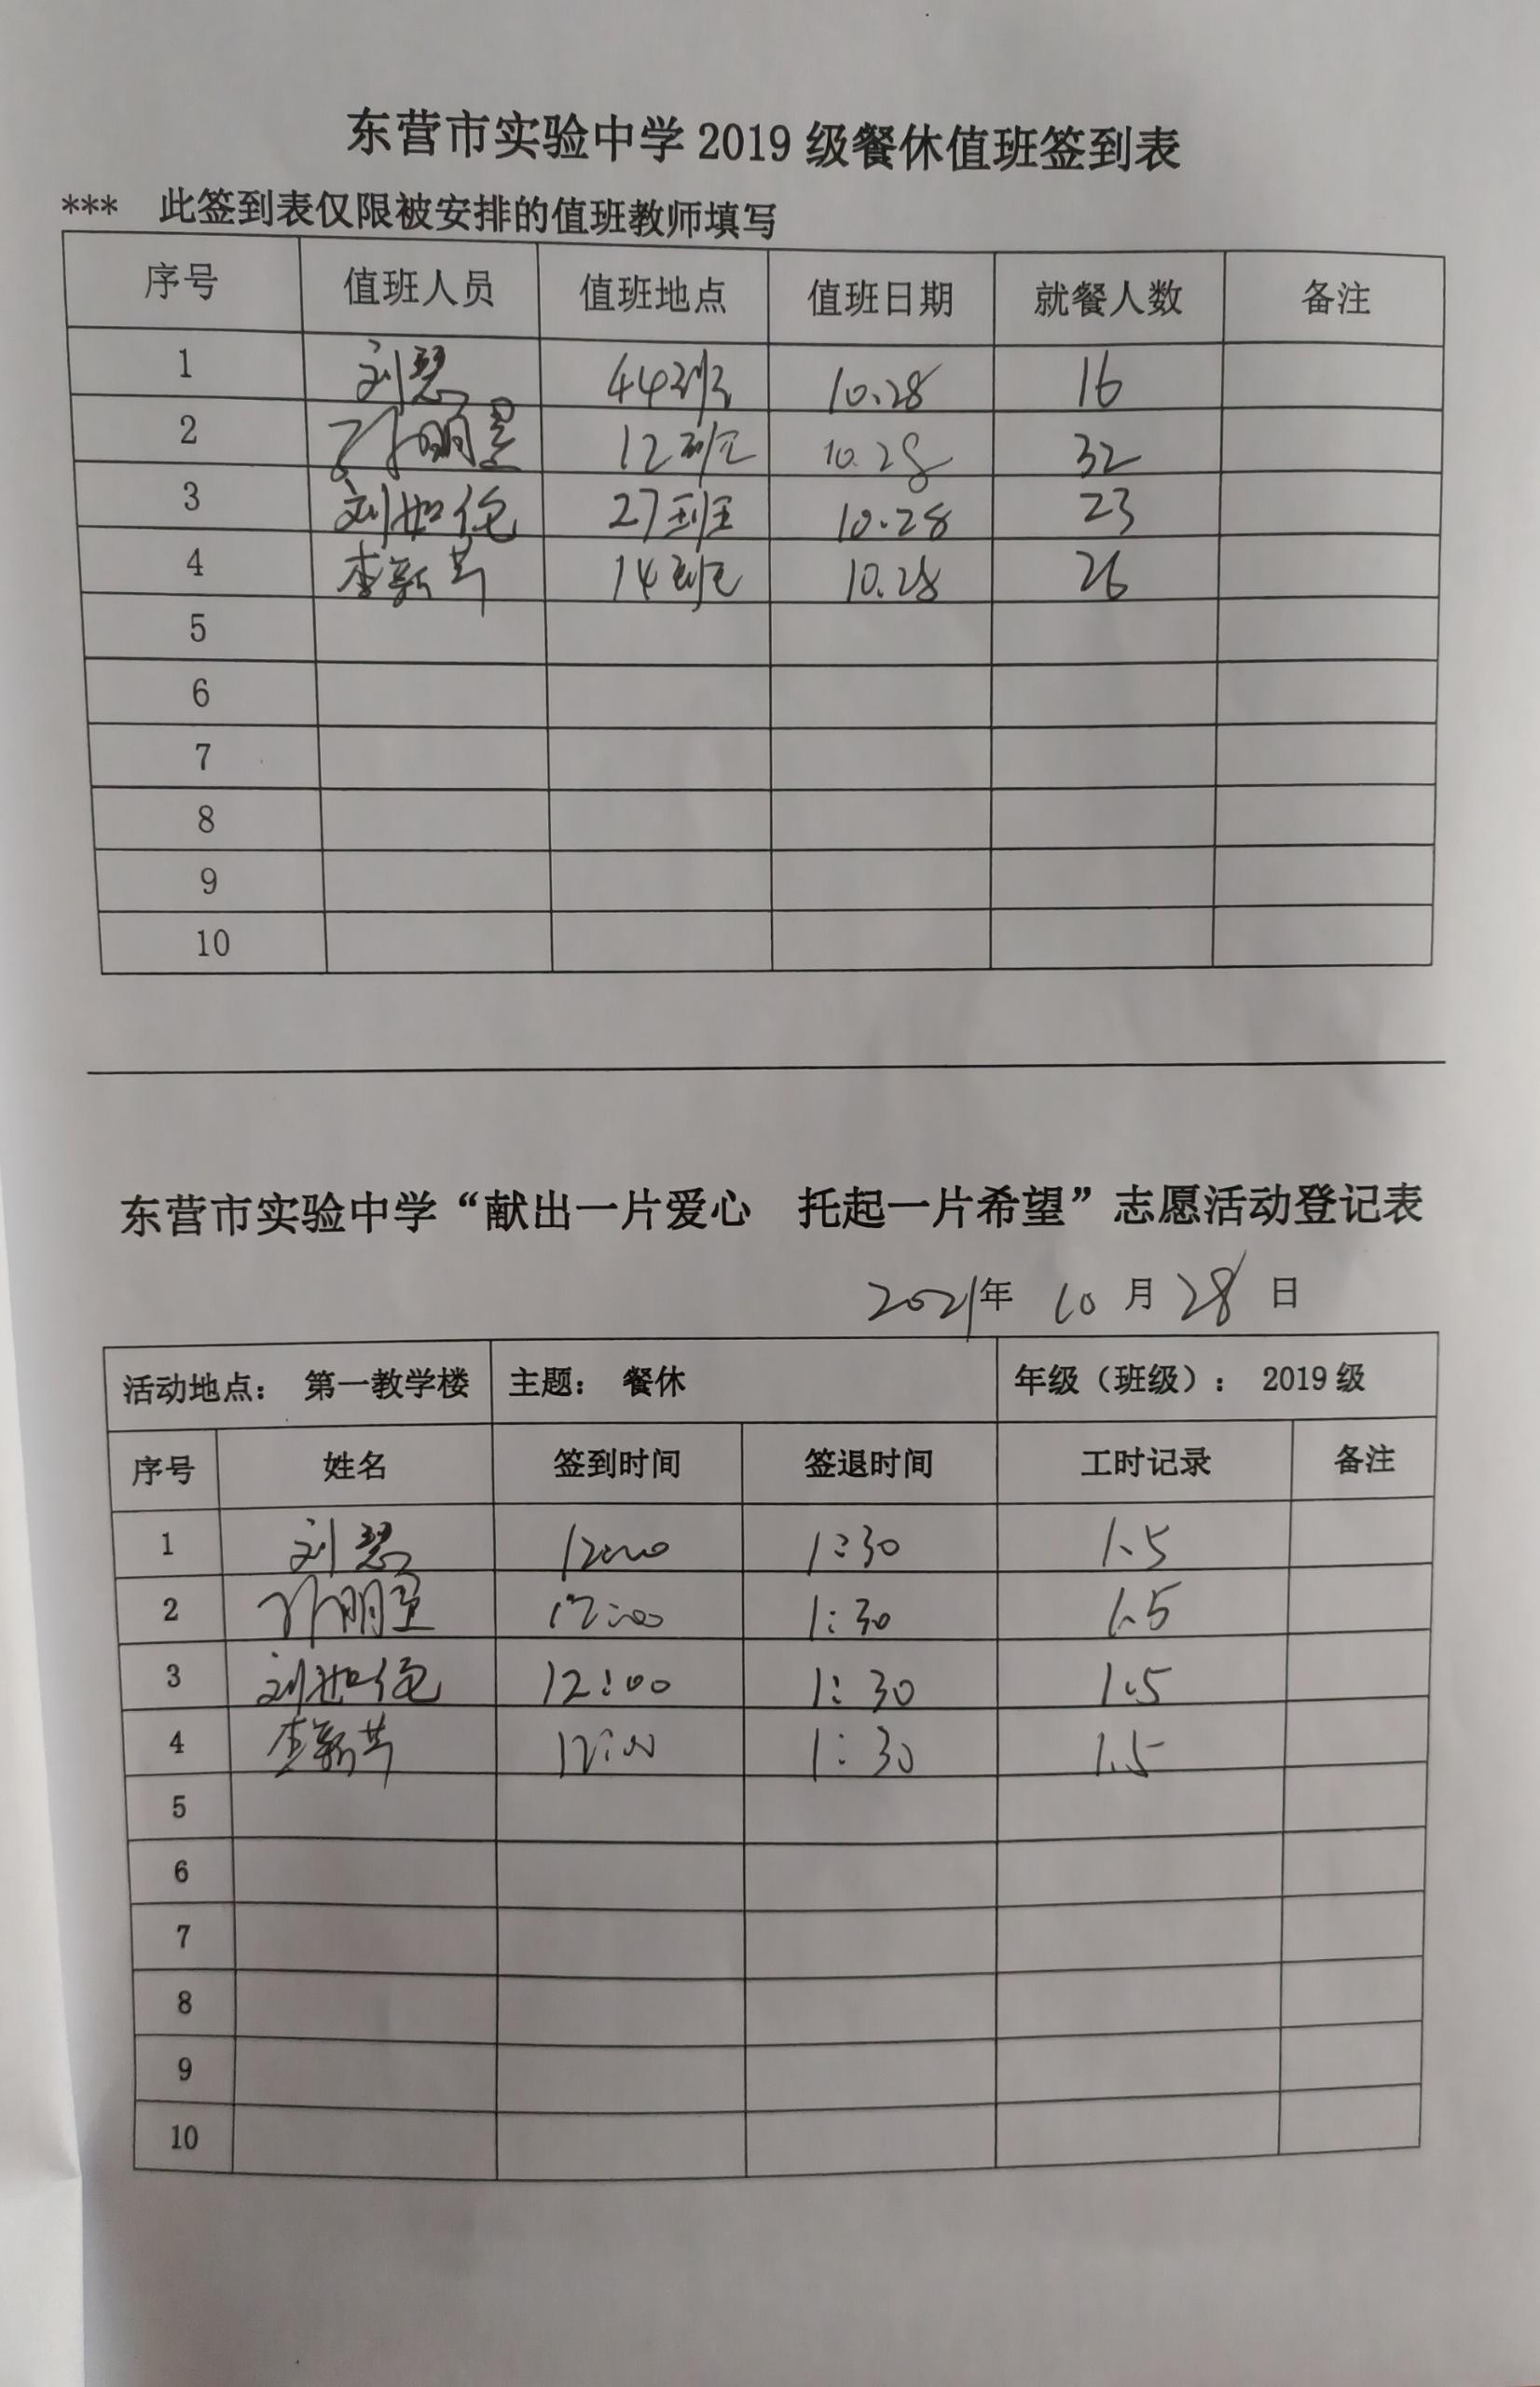 东营市实验中学 2019 级餐休值班签到表
*** 此签到表仅限被安排的值班教师填写
序号 值班人员 值班地点 值班日期 就餐人数 备注
1 刘慧 44班 10.28 16
2 孙明星 12班 10.28 32
3 刘如 27班 10.28 23
4 李新 14班 10.28 26
5
6
7
8
9
10
东营市实验中学“献出一片爱心 托起一片希望”志愿活动登记表
2021年 10 月 28 日
活动地点： 第一教学楼 主题： 餐休 年级（班级）： 2019 级
序号 姓名 签到时间 签退时间 工时记录 备注
1 刘慧 12:00 1:30 1.5
2 孙明星 12:00 1:30 1.5
3 刘如 12:00 1:30 1.5
4 李新 12:00 1:30 1.5
5
6
7
8
9
10